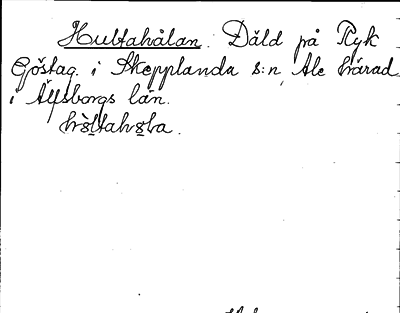 Hultahålan. Däld på Ryk
Göstag. i Skepplanda s:n, Ale härad
i Älfsborgs län.